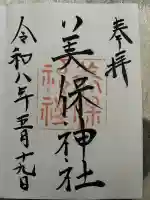 奉拝
美保神社
令和八年五月十九日